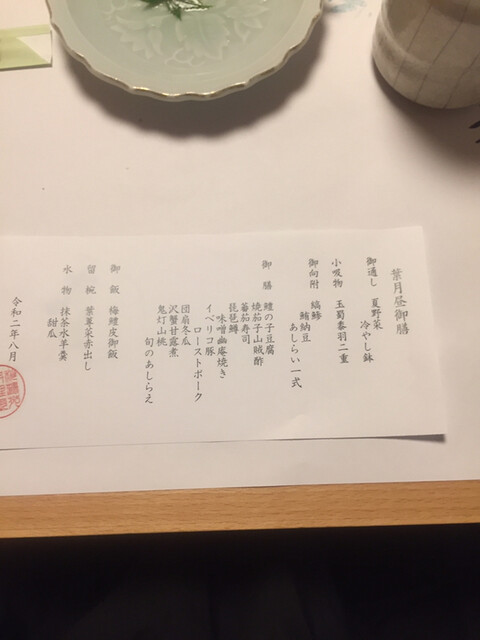 葉月昼御膳
御通し 夏野菜
冷やし鉢
小吸物 玉蜀黍羽二重
御向附 縞鯵
鮪納豆
あしらい一式
御膳 鱧の子豆腐
焼茄子山賊酢
蕃茄寿司
琵琶鱒
味噌幽庵焼き
イベリコ豚
ローストポーク
団扇冬瓜
沢蟹甘露煮
鬼灯山桃
旬のあしらえ
御飯 梅鱧皮御飯
留椀 蓴菜赤出し
水物 抹茶水羊羹
甜瓜
令和二年八月